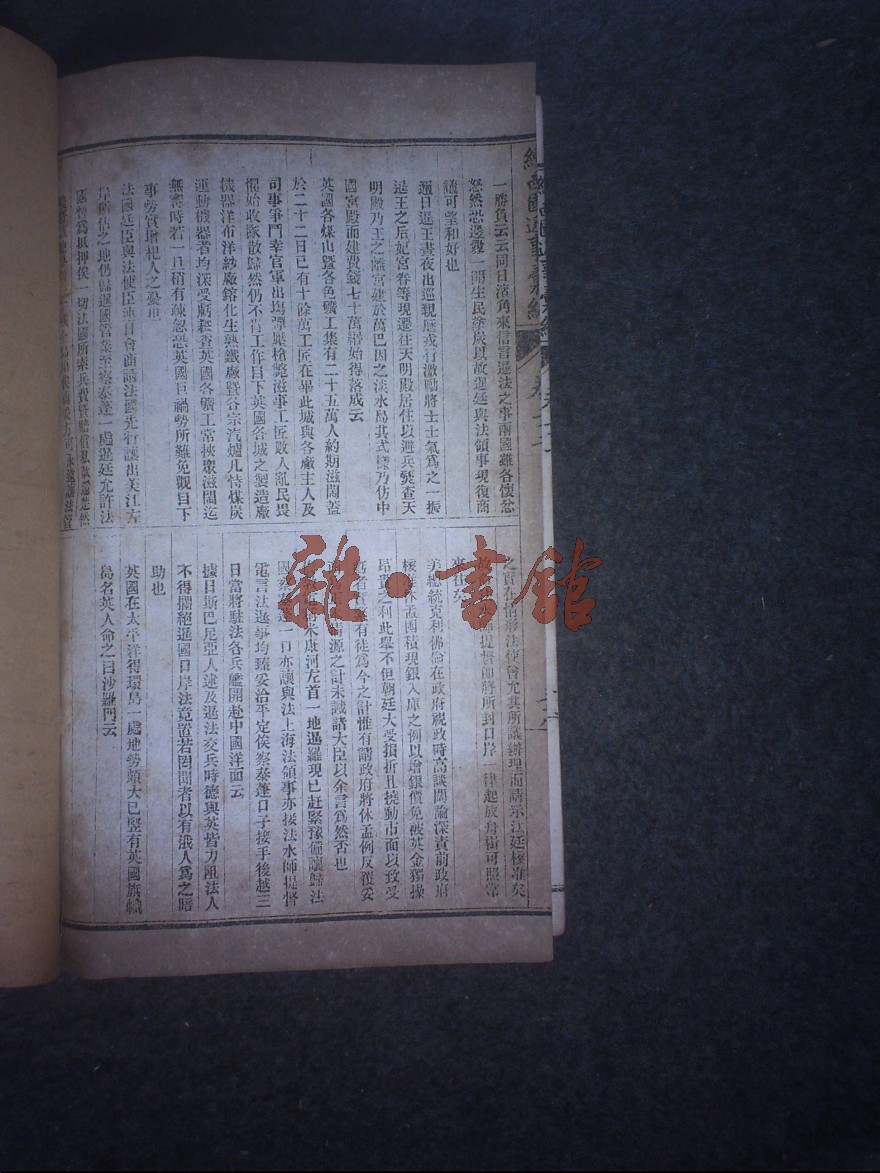 一勝負云云同日濱角來信言暹法之事兩國雖各懷忿
怒然恐邊釁一開生民塗炭以故暹廷與法領事現復商
議可望和好也
邇日暹王晝夜出巡親歷戎行激勵將士士氣爲之一振
暹王之后妃宮眷等現遷往天明殿居住以避兵燹查天
明殿乃王之離宮建於萬巴因之淡水島其式樣乃仿中
國宮殿而建費錢七十萬緡始得落成云
英國各煤山暨各色礦工集有二十五萬人約期滋鬧蓋
於二十二日已有十餘萬工匠在畢此城與各廠主人及
司事爭鬥幸官軍出塲彈壓槍斃滋事工匠數人亂民畏
懼始收隊散歸然仍不肯工作目下英國各城之製造廠
機器洋布洋紗廠鎔化生熟鐵廠暨谷宗汽爐凡恃煤炭
運動機器者均深受虧耗查英國各礦工常挾衆滋鬧迄
無寧時若一日稍有疎忽恐英國巨禍勢所難免觀目下
事勞實增杞人之憂也
法國廷臣與法使臣連日會商請法國先行讓出美江左
岸所佔之地仍歸暹國管業至察泰蓬一處暹廷允許法
國暫爲抵押俟一切法國所索兵費暨賠償私款還楚然
之實在情形法使曾允其所議辦理而請示法廷核准矣
水師提督卽將所封口岸一律起放舟楫可照常
來往矣
美總統克利佛倫在政府視政時高談闊論深責前政府
休孟團積現銀入庫之例以增銀價免被英金獨操
昂貴之利此舉不但朝廷大受損折且撓動市面以致受
者 有徒爲今之計惟有請政府將休孟例反覆妥
清源之計未識諸大臣以余言爲然否也
米康河左首一地暹羅現已赶緊豫備讓歸法
國察泰蓬一口亦讓與法上海法領事亦接法水師提督
電言法暹事均臻妥洽平定俟察泰蓬口子接手後越三
日當將駐法各兵艦開赴中國洋面云
據日斯巴尼亞人述及暹法交兵時德與英皆力阻法人
不得攔絕暹國口岸法竟置若罔聞者以有俄人爲之暗
助也
英國在太平洋得環島一處地勢頗大已竪有英國旗幟
島名英人命之曰沙羅門云
雜·書館